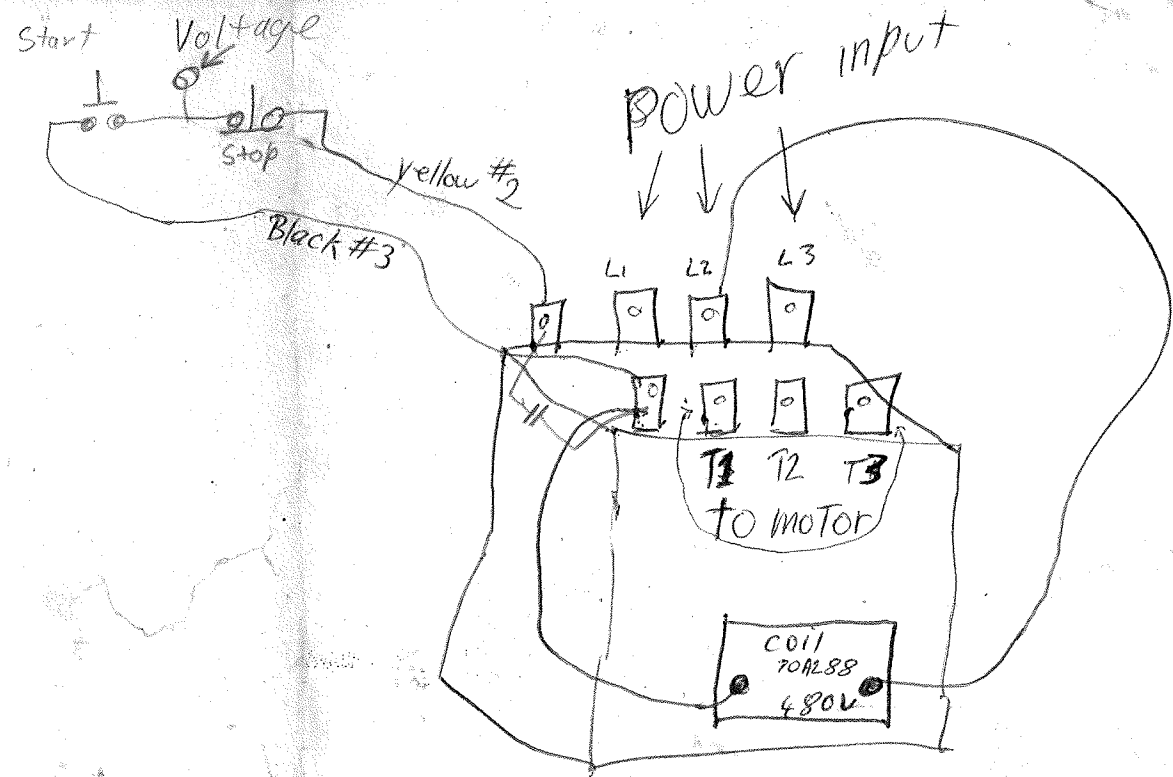 Start
Voltage
Stop
yellow #2
Black #3
Power input
L1 L2 L3
T1 T2 T3
to moTor
coil
70A288
480V